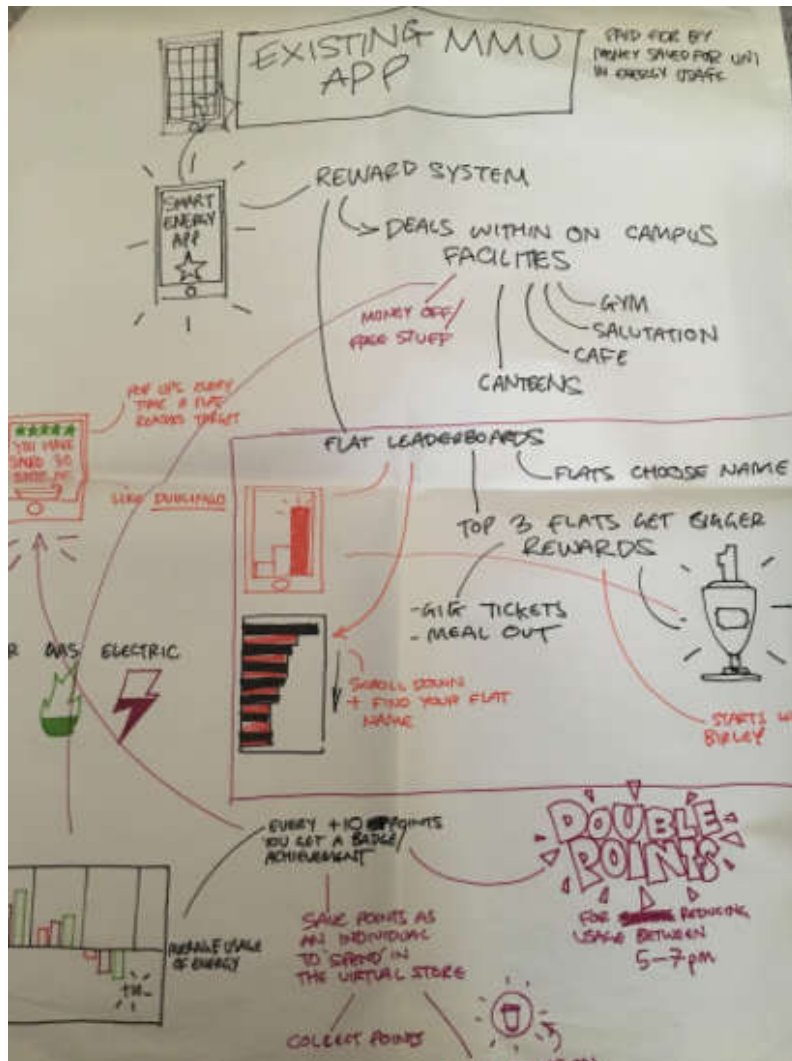 EXISTING MMU
APP
PAID FOR BY
MONEY SAVED FOR UNI
IN ENERGY USAGE
SMART
ENERGY
APP
REWARD SYSTEM
DEALS WITHIN ON CAMPUS
FACILITES
MONEY OFF/
FREE STUFF
GYM
SALUTATION
CAFE
CANTEENS
POP UPS EVERY
TIME A FLAT
REACHES TARGET
YOU HAVE
SAVED
FLAT LEADERBOARDS
FLATS CHOOSE NAME
LIKE
TOP 3 FLATS GET BIGGER
REWARDS
1
- GIG TICKETS
- MEAL OUT
SCROLL DOWN
+ FIND YOUR FLAT
NAME
STARTS
BIRLEY
GAS
ELECTRIC
EVERY +10 POINTS
YOU GET A BADGE/
ACHIEVEMENT
DOUBLE
POINTS
FOR REDUCING
USAGE BETWEEN
5-7pm
AVERAGE USAGE
OF ENERGY
SAVE POINTS AS
AN INDIVIDUAL
TO 'SPEND' IN
THE VIRTUAL STORE
COLLECT POINTS